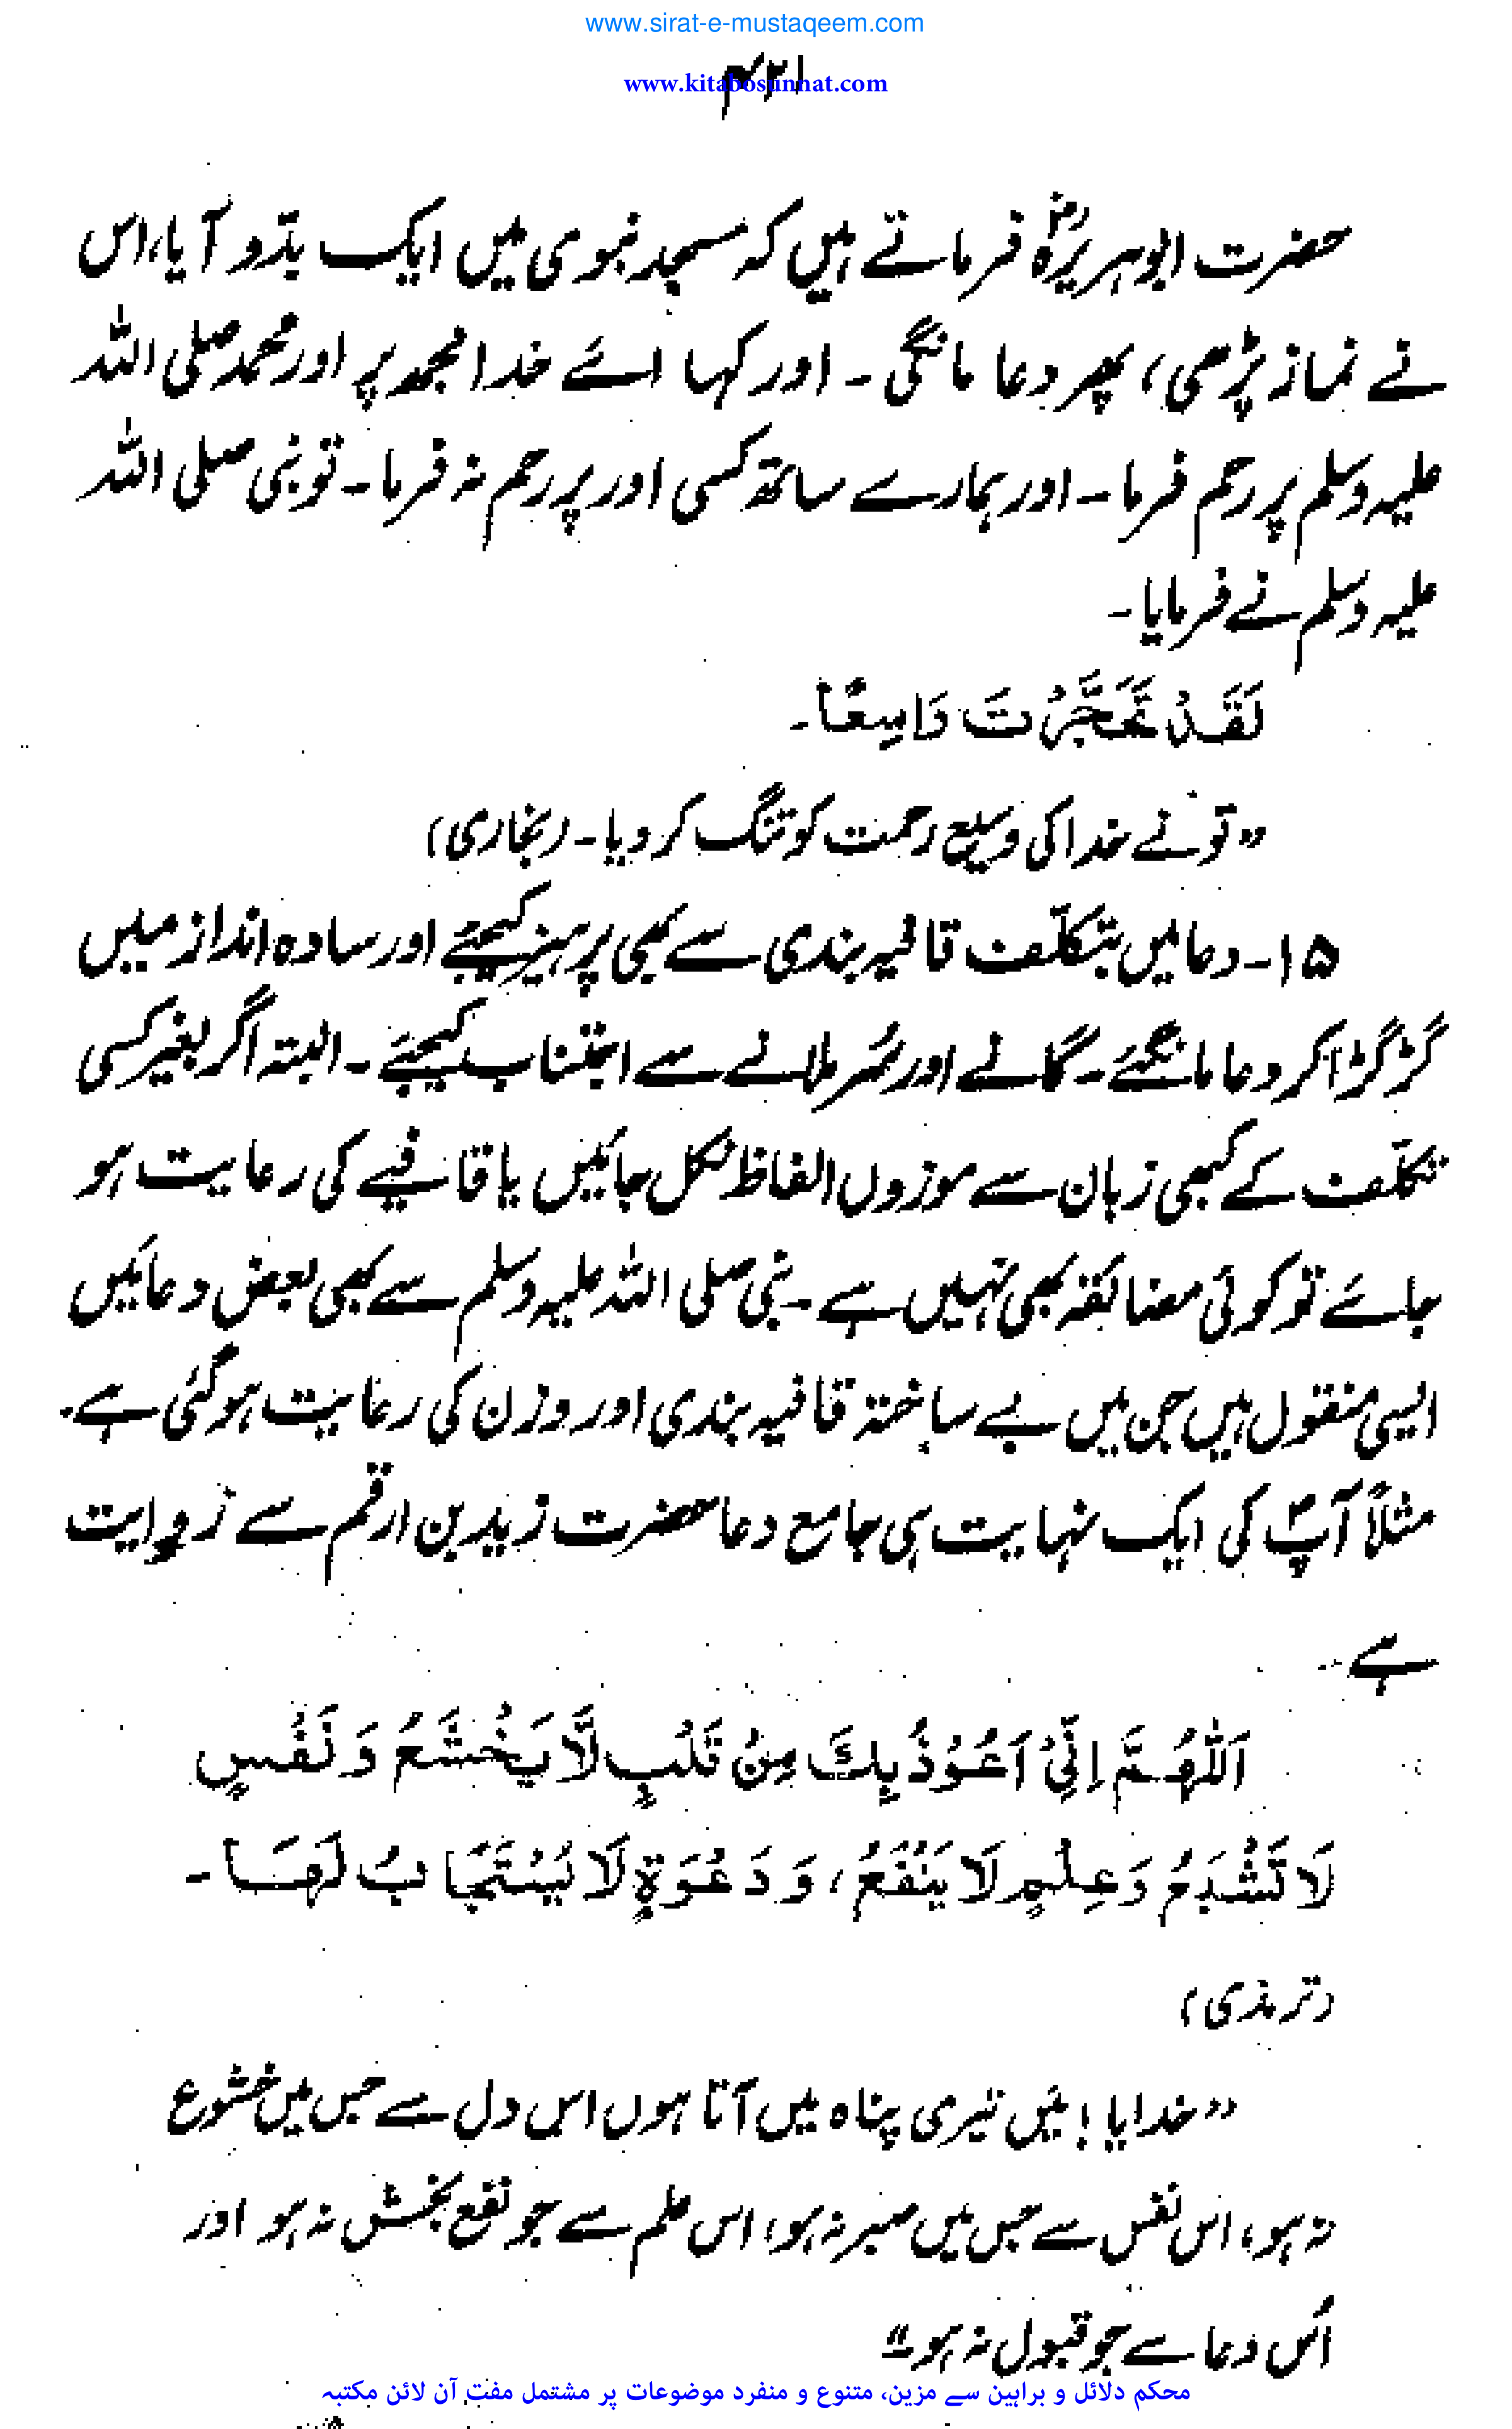 www.sirat-e-mustaqeem.com
۴۲۱
www.kitabosunnat.com
حضرت ابوہریرہؓ فرماتے ہیں کہ مسجد نبوی میں ایک بدّو آیا، اس
نے نماز پڑھی، پھر دعا مانگی ۔ اور کہا اے خدا مجھ پر اور محمد صلی اللہ
علیہ وسلم پر رحم فرما ۔ اور ہمارے ساتھ کسی اور پر رحم نہ فرما ۔ تو نبی صلی اللہ
علیہ وسلم نے فرمایا ۔
لَقَدْ تَحَجَّرْتَ وَاسِعًا ۔
”تو نے خدا کی وسیع رحمت کو تنگ کر دیا ۔ (بخاری)
۱۵ ۔ دعا میں بتکلّف قافیہ بندی سے بھی پرہیز کیجئے اور سادہ انداز میں
گڑگڑا کر دعا مانگئے ۔ گانے اور سُر ملانے سے اجتناب کیجئے ۔ البتہ اگر بغیر کسی
تکلّف کے کبھی زبان سے موزوں الفاظ نکل جائیں یا قافیے کی رعایت ہو
جائے تو کوئی مضائقہ بھی نہیں ہے ۔ نبی صلی اللہ علیہ وسلم سے بھی بعض دعائیں
ایسی منقول ہیں جن میں بے ساختہ قافیہ بندی اور وزن کی رعایت ہو گئی ہے ۔
مثلاً آپؐ کی ایک نہایت ہی جامع دعا حضرت زید بن ارقم سے روایت
ہے ۔
اَللّٰهُمَّ اِنِّیْ اَعُوْذُ بِكَ مِنْ قَلْبٍ لَّا یَخْشَعُ وَ نَفْسٍ
لَا تَشْبَعُ وَعِلْمٍ لَا یَنْفَعُ ، وَ دَعْوَةٍ لَا یُسْتَجَابُ لَهَا ۔
(ترمذی)
”خدایا ! میں تیری پناہ میں آتا ہوں اس دل سے جس میں خشوع
نہ ہو، اس نفس سے جس میں صبر نہ ہو، اس علم سے جو نفع بخش نہ ہو اور
اُس دعا سے جو قبول نہ ہو ۔“
محکم دلائل و براہین سے مزین، متنوع و منفرد موضوعات پر مشتمل مفت آن لائن مکتبہ